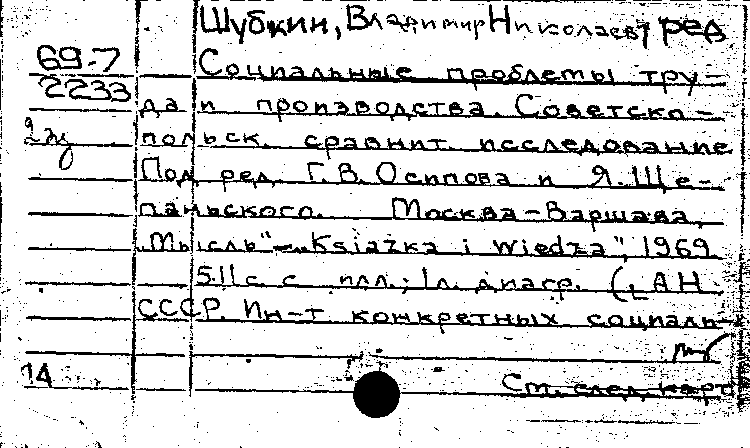 Шубкин, Владимир Николаевич, ред
69-7 Социальные проблемы тру-
2233 да и производства. Советско-
2эк польск. сравнит. исследование
Под ред. Г.В. Осипова и Я. Ще-
паньского. Москва-Варшава,
„Мысль"-„Książka i wiedza", 1969
511 с. с илл.; 1 л. диагр. (АН
СССР. Ин-т конкретных социаль-
14 См. след. карт